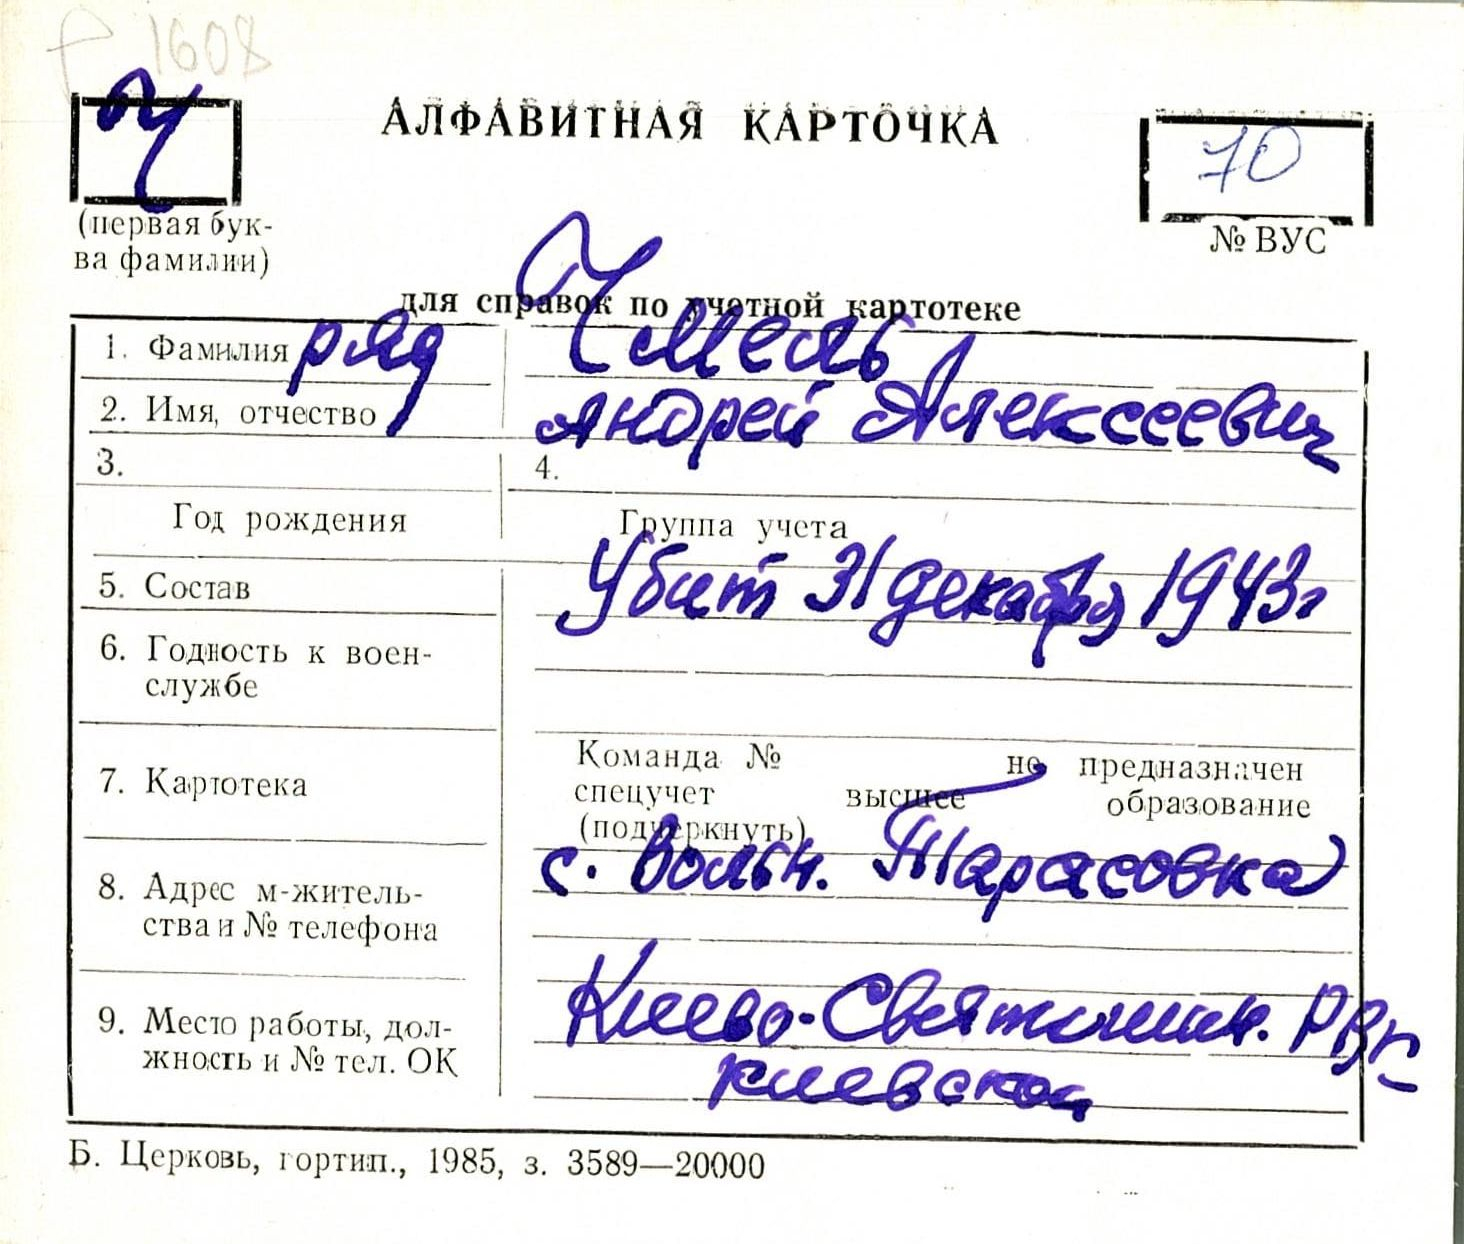 1608
Ч
АЛФАВИТНАЯ КАРТОЧКА
70
(первая бук-
ва фамилии)
№ ВУС
для справок по учетной картотеке
1. Фамилия ряд Чмель
2. Имя, отчество Андрей Алексеевич
3. 4.
Год рождения Группа учета
Убит 31 декабря 1943г
5. Состав
6. Годность к воен-
службе
7. Картотека
Команда № не предназначен
спецучет высшее образование
(подчеркнуть)
с. Вольн. Тарасовка
8. Адрес м-житель-
ства и № телефона
Киево-Святошин. РВК
9. Место работы, дол-
жность и № тел. ОК
Киевской
Б. Церковь, гортип., 1985, з. 3589—20000